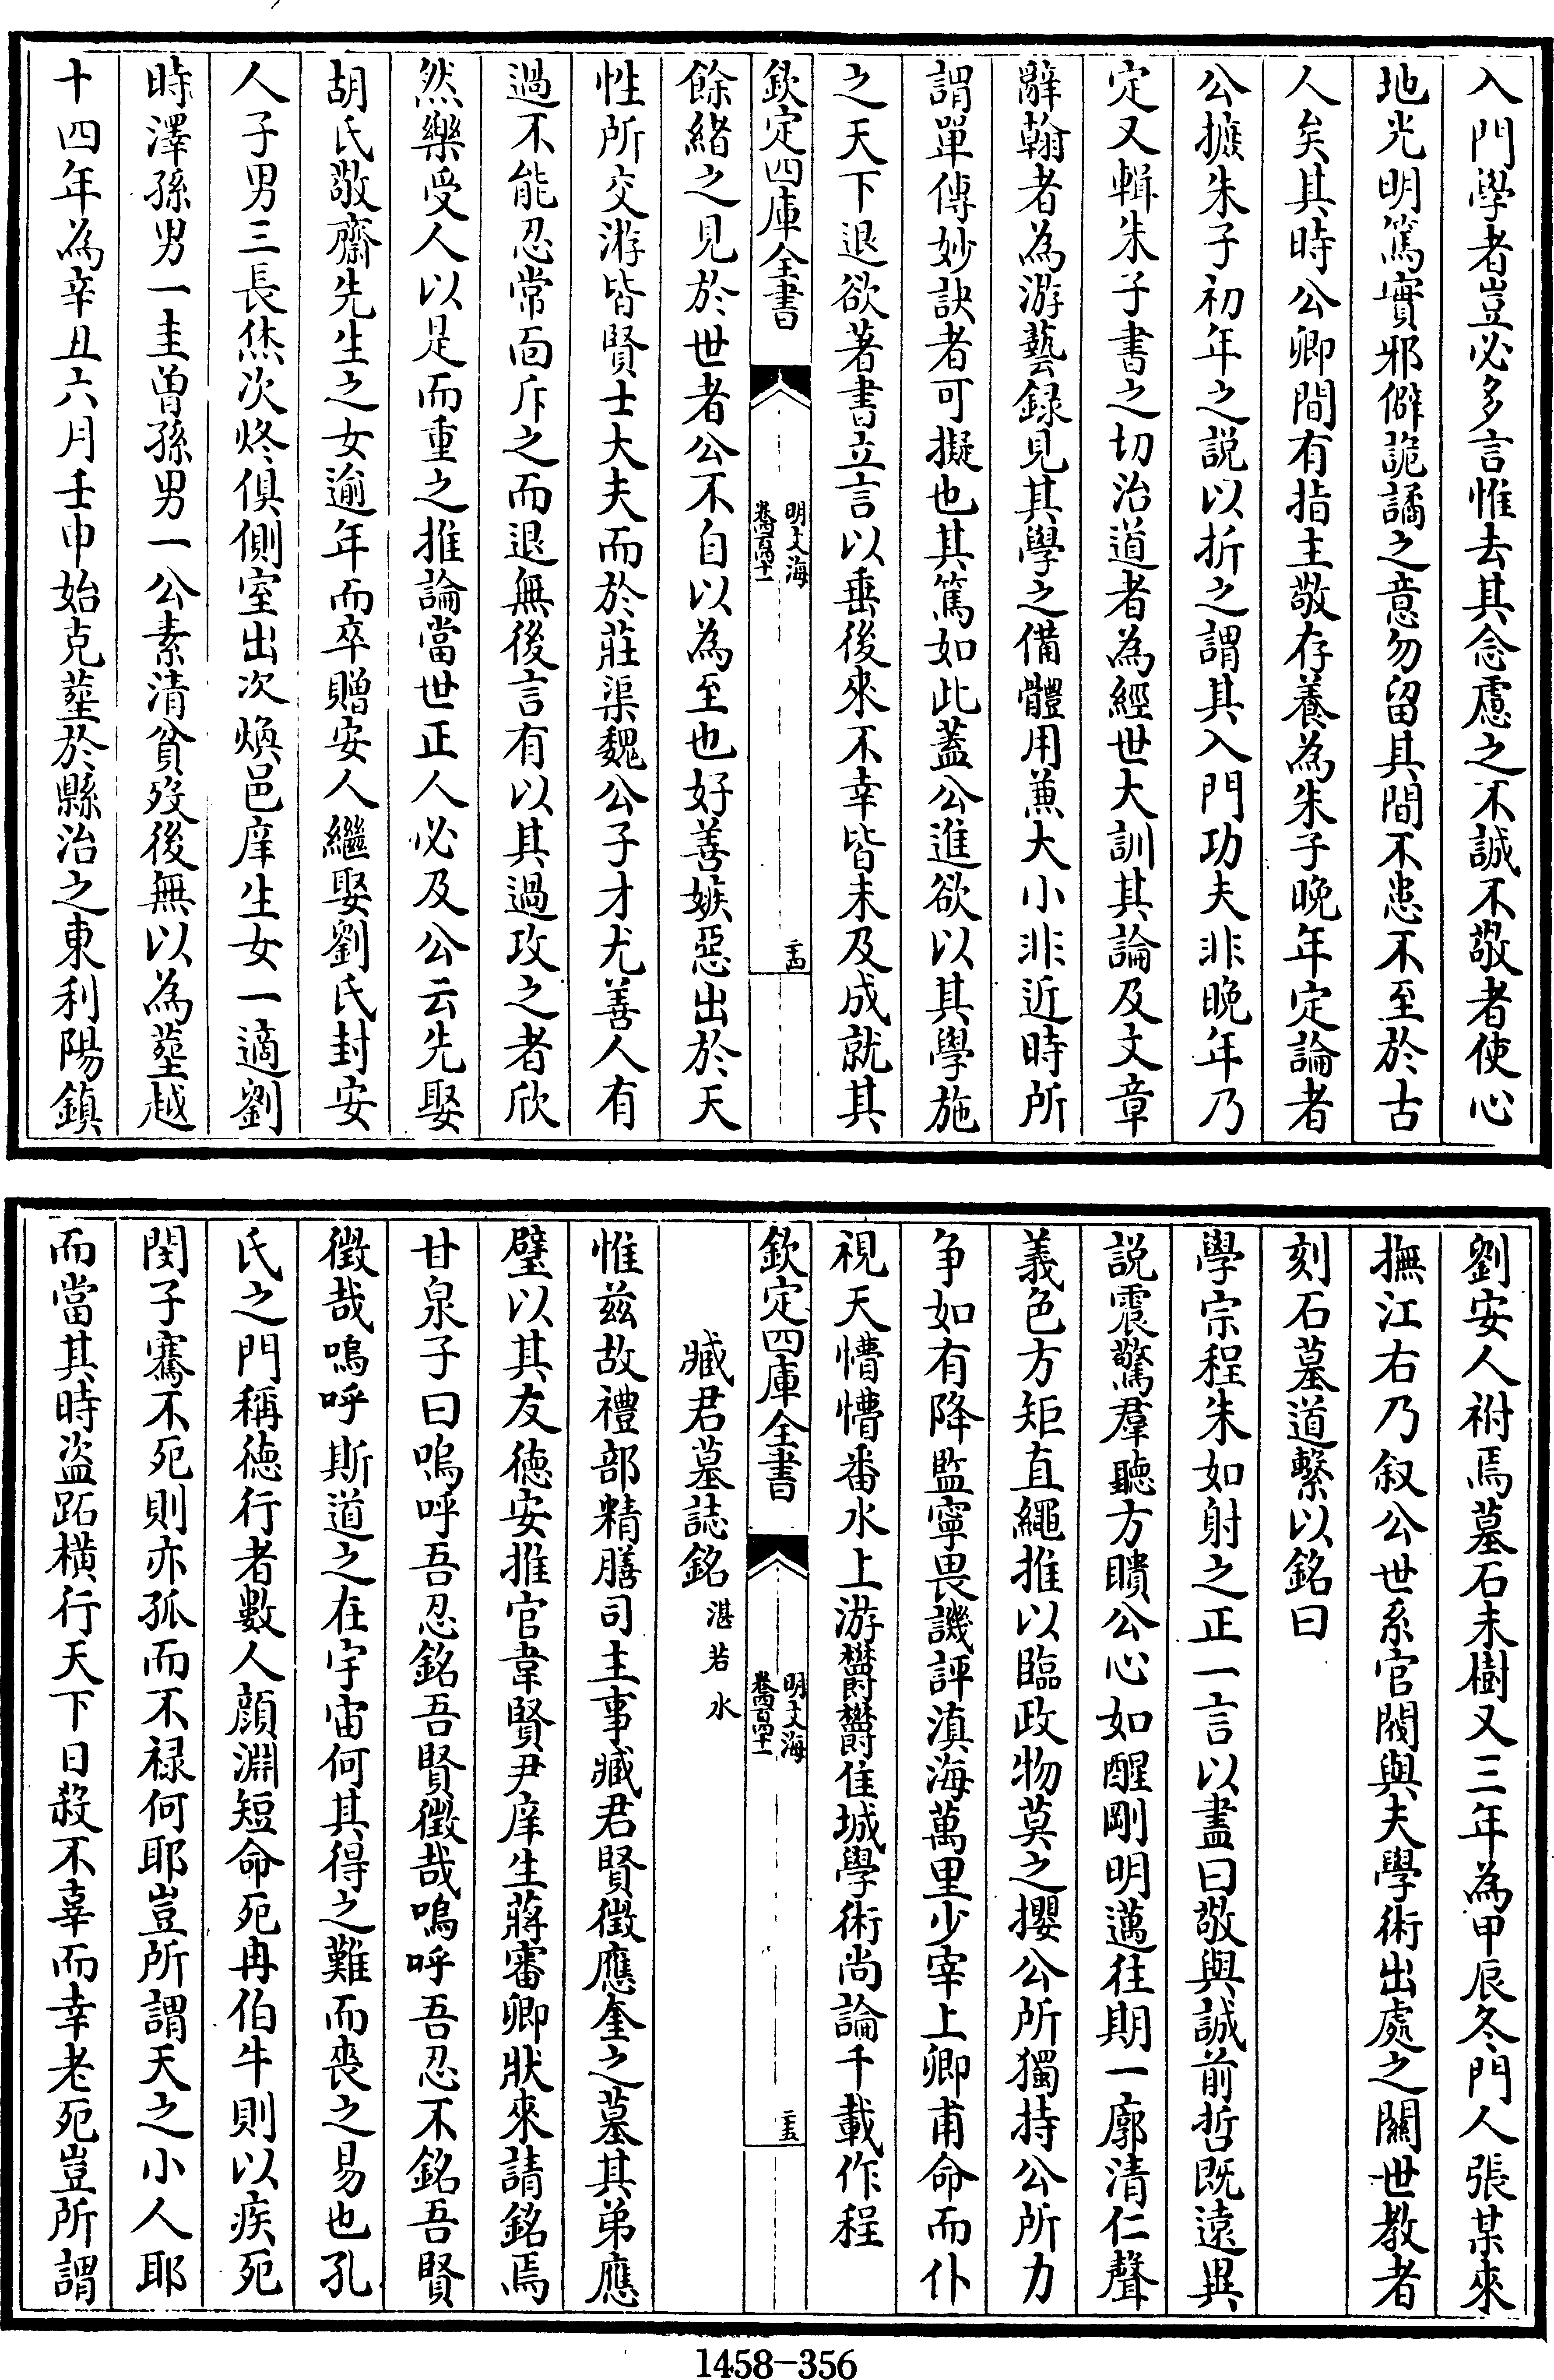 入門學者豈必多言惟去其念慮之不誠不敬者使心
地光明篤實邪僻詭譎之意勿留其間不患不至於古
人矣其時公卿間有指主敬存養為朱子晚年定論者
公摭朱子初年之説以折之謂其入門功夫非晚年乃
定又輯朱子書之切治道者為經世大訓其論及文章
辭翰者為游藝録見其學之備體用兼大小非近時所
謂單傳妙訣者可擬也其篤如此蓋公進欲以其學施
之天下退欲著書立言以垂後來不幸皆未及成就其
欽定四庫全書
明文海
卷四百四十一
餘緒之見於世者公不自以為至也好善嫉惡出於天
性所交游皆賢士大夫而於莊渠魏公子才尤善人有
過不能忍常面斥之而退無後言有以其過攻之者欣
然樂受人以是而重之推論當世正人必及公云先娶
胡氏敬齋先生之女逾年而卒贈安人繼娶劉氏封安
人子男三長烋次炵俱側室出次煥邑庠生女一適劉
時澤孫男一圭曽孫男一公素清貧歿後無以為塟越
十四年為辛丑六月壬申始克塟於縣治之東利陽鎮
劉安人祔焉墓石未樹又三年為甲辰冬門人張某來
撫江右乃叙公世系官閥與夫學術出處之關世教者
刻石墓道繫以銘曰
學宗程朱如射之正一言以盡曰敬與誠前哲既遠異
説震驚羣聽方瞶公心如醒剛明邁往期一廓清仁聲
義色方矩直繩推以臨政物莫之攖公所獨持公所力
争如有降監寧畏譏評滇海萬里少宰上卿甫命而仆
視天懵懵番水上游欝欝佳城學術尚論千載作程
欽定四庫全書
明文海
卷四百四十一
臧君墓誌銘 湛若水
惟兹故禮部精膳司主事臧君賢徴應奎之墓其弟應
璧以其友徳安推官韋賢尹庠生蔣審卿狀來請銘焉
甘泉子曰嗚呼吾忍銘吾賢徴哉嗚呼吾忍不銘吾賢
徴哉嗚呼斯道之在宇宙何其得之難而喪之易也孔
氏之門稱徳行者數人顔淵短命死冉伯牛則以疾死
閔子騫不死則亦孤而不禄何耶豈所謂天之小人耶
而當其時盗跖横行天下日殺不辜而幸老死豈所謂
1458-356